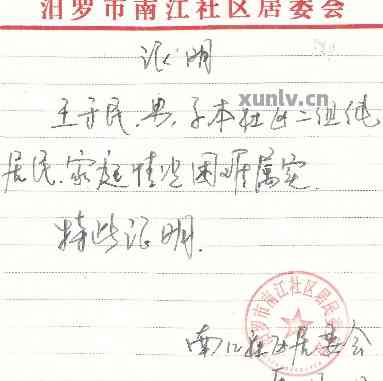 汨罗市南江社区居委会
证明
xunlv.cn
王子民,男,子本社区二组
居民,家庭情况困难属实.
特此证明.
汨罗市南江社区居民委员会
南江社区居委会